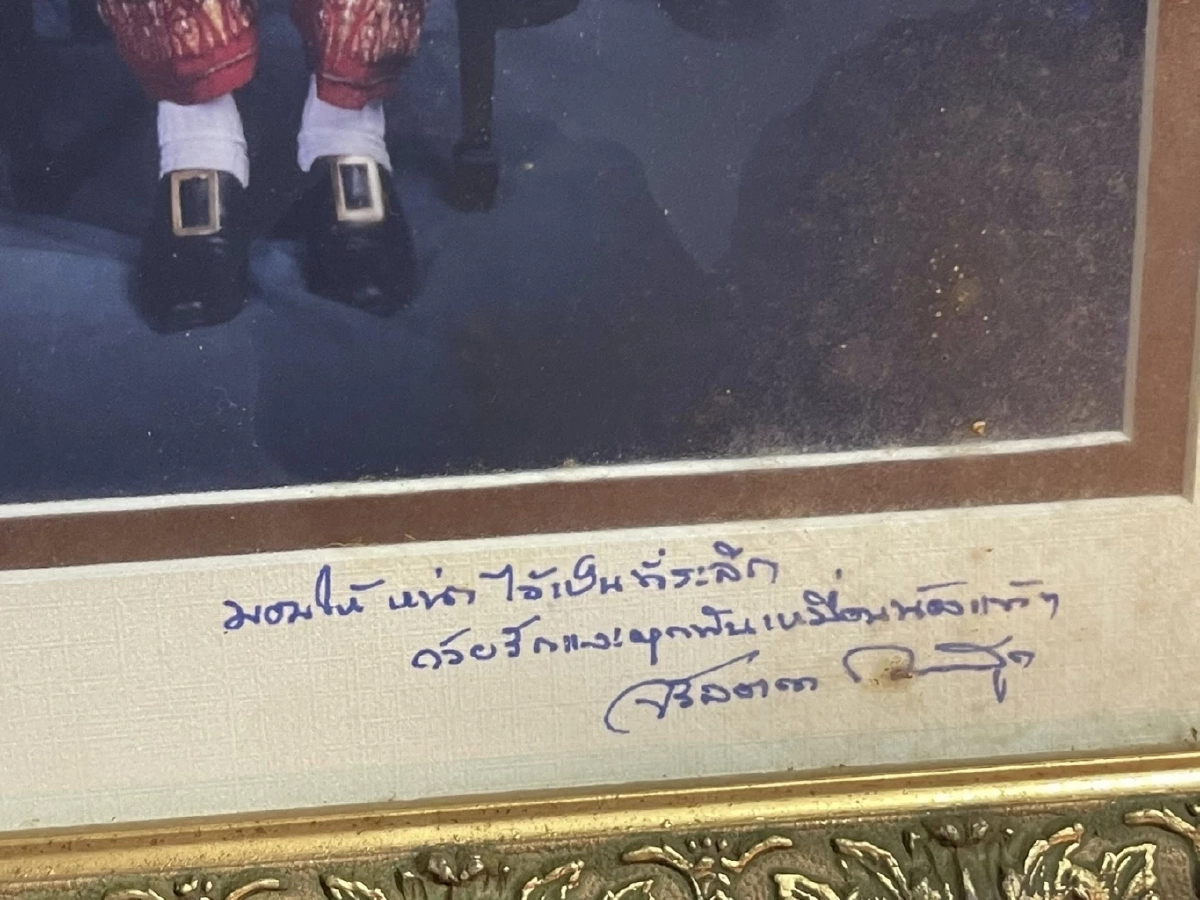 มอบให้ หน่า ไว้เป็นที่ระลึก
ด้วยรักและผูกพันเหมือนน้องแท้ๆ